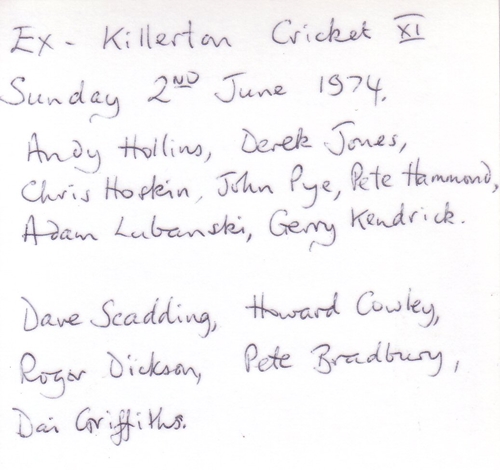 Ex - Killerton Cricket XI
Sunday 2ND June 1974.
Andy Hollins, Derek Jones,
Chris Hoskin, John Pye, Pete Hammond,
Adam Lubanski, Gerry Kendrick.
Dave Scadding, Howard Cowley,
Roger Dickson, Pete Bradbury,
Dai Griffiths.